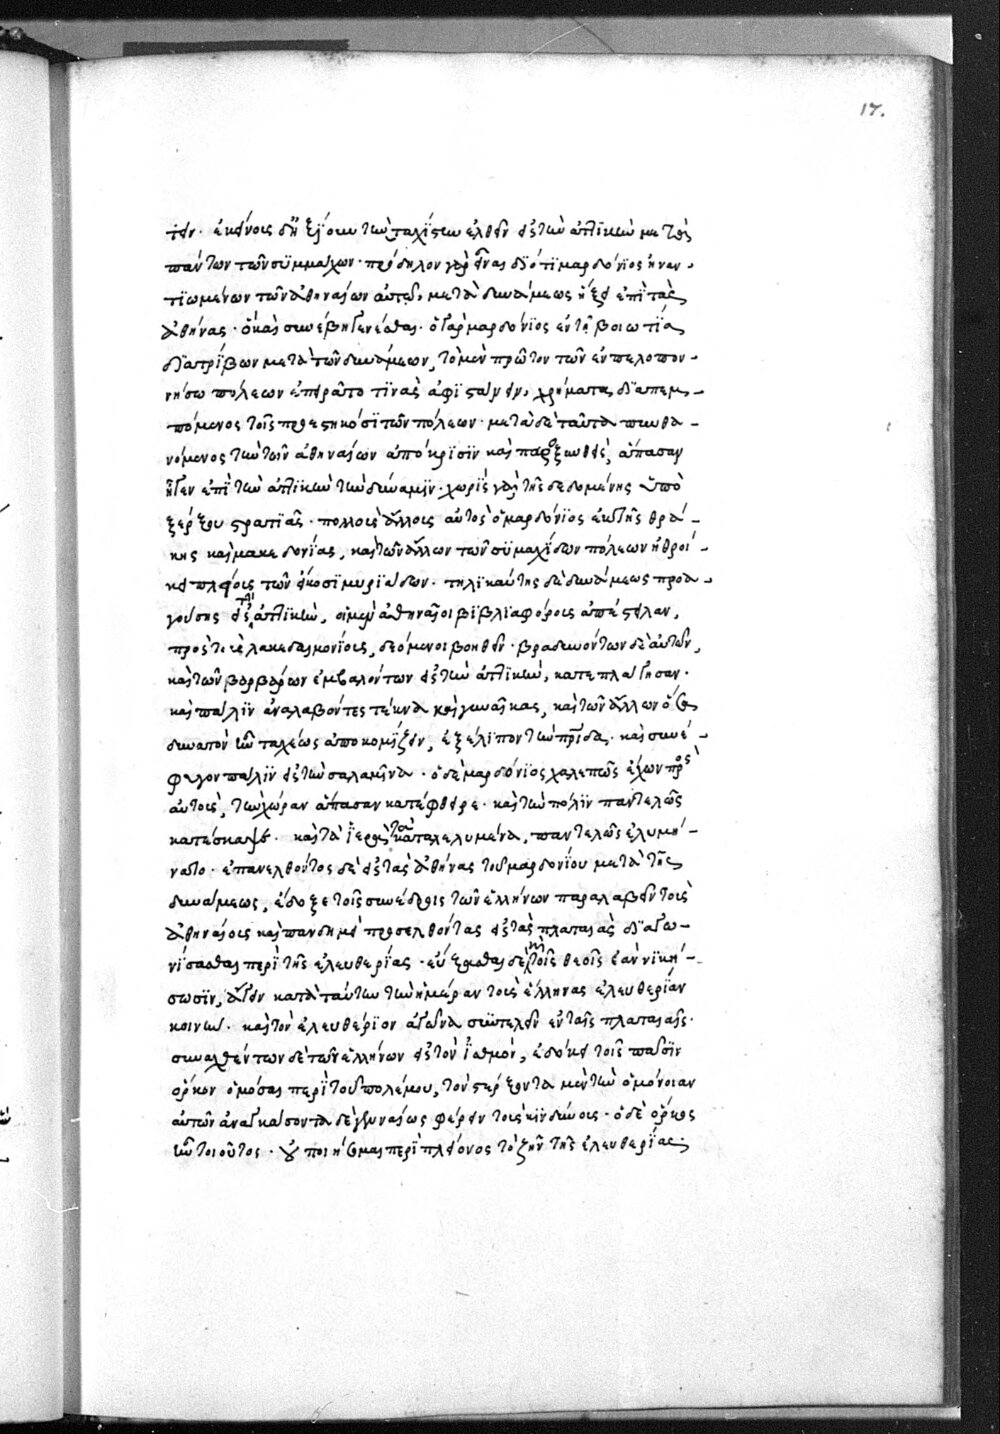 17.
τειν. ἐκείνοις δὴ ἠξίουν τὴν ταχίστην ἐλθεῖν εἰς τὴν ἀττικὴν μετὰ
πάντων τῶν συμμάχων· πρόδηλον γὰρ εἶναι διότι μαρδόνιος ἠναν-
τιωμένων τῶν ἀθηναίων αὐτῶ, μετὰ δυνάμεως ἥξει ἐπὶ τὰς
ἀθήνας· ὃ καὶ συνέβη γενέσθαι. ὁ γὰρ μαρδόνιος ἐν τῆ βοιωτία
διατρίβων μετὰ τῶν δυνάμεων, τὸ μὲν πρῶτον τῶν ἐν πελοπον-
νήσω πόλεων ἐπειρᾶτο τινὰς ἀφιστάνειν, χρήματα διαπεμ-
πόμενος τοῖς προεστηκόσι τῶν πόλεων· μετὰ δὲ ταῦτα πυνθα-
νόμενος τὴν τῶν ἀθηναίων ἀπόκρισιν καὶ παροξυνθεὶς, ἅπασαν
ἦγεν ἐπὶ τὴν ἀττικὴν τὴν δύναμιν· χωρὶς γὰρ τῆς δεδομένης ὑπὸ
ξέρξου στρατιᾶς· πολλοὺς ἄλλους αὐτὸς ὁ μαρδόνιος ἐκ τῆς θρά-
κης καὶ μακεδονίας, καὶ τῶν ἄλλων τῶν συμμαχίδων πόλεων ἠθροί-
κει πλείους τῶν εἴκοσι μυριάδων. τηλικαύτης δὲ δυνάμεως προα-
γούσης εἰς τὴν ἀττικὴν, οἱ μὲν ἀθηναῖοι βιβλιαφόρους ἀπέστειλαν,
πρὸς τοὺς λακεδαιμονίους, δεόμενοι βοηθεῖν· βραδυνόντων δὲ αὐτῶν,
καὶ τῶν βαρβάρων ἐμβαλόντων εἰς τὴν ἀττικὴν, κατεπλάγησαν.
καὶ πάλιν ἀναλαβόντες τέκνα καὶ γυναῖκας, καὶ τῶν ἄλλων ὅσα
δυνατὸν ἦν ταχέως ἀποκομίζειν, ἐξέλιπον τὴν πρίδα· καὶ συνέ-
φυγον πάλιν εἰς τὴν σαλαμῖνα· ὁ δὲ μαρδόνιος χαλεπῶς ἔχων πρὸς
αὐτοὺς, τὴν χώραν ἅπασαν κατέφθειρε· καὶ τὴν πόλιν παντελῶς
κατέσκαψε· καὶ τὰ ἱερὰ τὰ καταλελυμένα, παντελῶς ἐλυμή-
νατο· ἐπανελθόντος δὲ εἰς τὰς ἀθήνας τοῦ μαρδονίου μετὰ τῆς
δυνάμεως, ἔδοξε τοῖς συνέδροις τῶν ἑλλήνων παραλαβεῖν τοὺς
ἀθηναίους καὶ πανδημεὶ προσελθόντας εἰς τὰς πλαταιὰς διαγω-
νίσασθαι περὶ τῆς ἐλευθερίας· εὔξασθαι δὲ καὶ τοῖς θεοῖς ἐὰν νική-
σωσιν, ἄγειν κατὰ ταύτην τὴν ἡμέραν τοὺς ἕλληνας ἐλευθερίαν
κοινῆ. καὶ τὸν ἐλευθέριον ἀγῶνα συντελεῖν ἐν ταῖς πλαταιαῖς·
συναχθέντων δὲ τῶν ἑλλήνων εἰς τὸν ἰσθμὸν, ἐδόκει τοῖς πᾶσιν
ὅρκον ὀμόσαι περὶ τοῦ πολέμου, τὸν στέρξοντα μὲν τὴν ὁμόνοιαν
αὐτῶν ἀναγκάσοντα δὲ γενναίως φέρειν τοὺς κινδύνους· ὁ δὲ ὅρκος
ἦν τοιοῦτος· οὐ ποιήσομαι περὶ πλείονος τὸ ζῆν τῆς ἐλευθερίας·